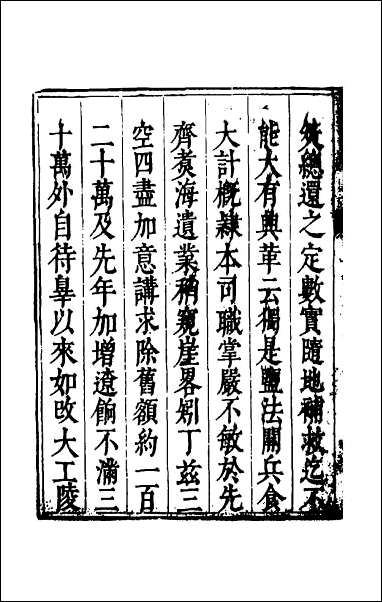 總還之定數實隨地補救迄不
能大有興革云獨是鹽法關兵食
大計概隷本司職掌嚴不敏於先
齊煑海遺業稍窺崖畧矧丁兹三
空四盡加意講求除舊額約一百
二十萬及先年加增遼餉不滿三
十萬外自待辠以來如改大工陵